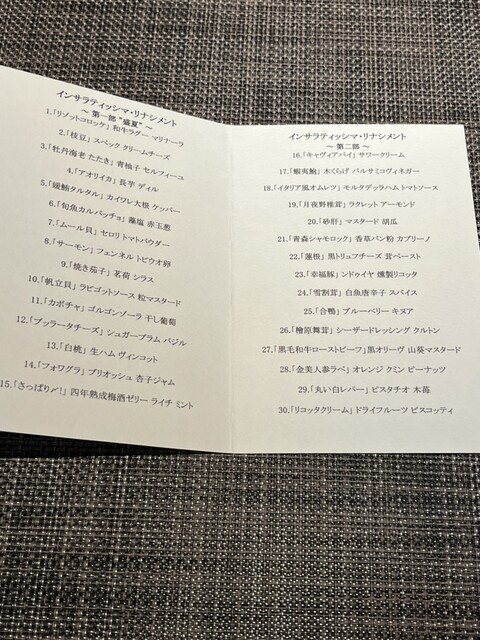 インサラティッシマ・リナシメント
～ 第一部 "盛夏" ～
1.「リゾットコロッケ」 和牛ラグー マリナーラ
2.「枝豆」 スペック クリームチーズ
3.「牡丹海老 たたき」 青柚子 セルフィーユ
4.「アオリイカ」 長芋 ディル
5.「鰹タルタル」 カイワレ大根 ケッパー
6.「旬魚カルパッチョ」 藻塩 赤玉葱
7.「ムール貝」 セロリ トマトパウダー
8.「サーモン」 フェンネル トビウオ卵
9.「焼き茄子」 茗荷 シラス
10.「帆立貝」 ラビゴットソース 粒マスタード
11.「カボチャ」 ゴルゴンゾーラ 干し葡萄
12.「ブッラータチーズ」 シュガープラム バジル
13.「白桃」 生ハム ヴィンコット
14.「フォワグラ」 ブリオッシュ 杏子ジャム
15.「さっぱり〆!」 四年熟成梅酒ゼリー ライチ ミント
インサラティッシマ・リナシメント
～ 第二部 ～
16.「キャヴィアパイ」 サワークリーム
17.「蝦夷鮑」 木くらげ バルサミコヴィネガー
18.「イタリア風オムレツ」 モルタデッラハム トマトソース
19.「月夜野椎茸」 ラクレット アーモンド
20.「砂肝」 マスタード 胡瓜
21.「青森シャモロック」 香草パン粉 カプリーノ
22.「蓮根」 黒トリュフチーズ 茸ペースト
23.「幸福豚」 ンドゥイヤ 燻製リコッタ
24.「雪割茸」 白魚唐辛子 スパイス
25.「合鴨」 ブルーベリー キヌア
26.「檜原舞茸」 シーザードレッシング クルトン
27.「黒毛和牛ローストビーフ」 黒オリーヴ 山葵マスタード
28.「金美人参ラペ」 オレンジ クミン ピーナッツ
29.「丸い白レバー」 ピスタチオ 木苺
30.「リコッタクリーム」 ドライフルーツ ビスコッティ